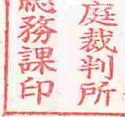 庭裁判所
総務課印